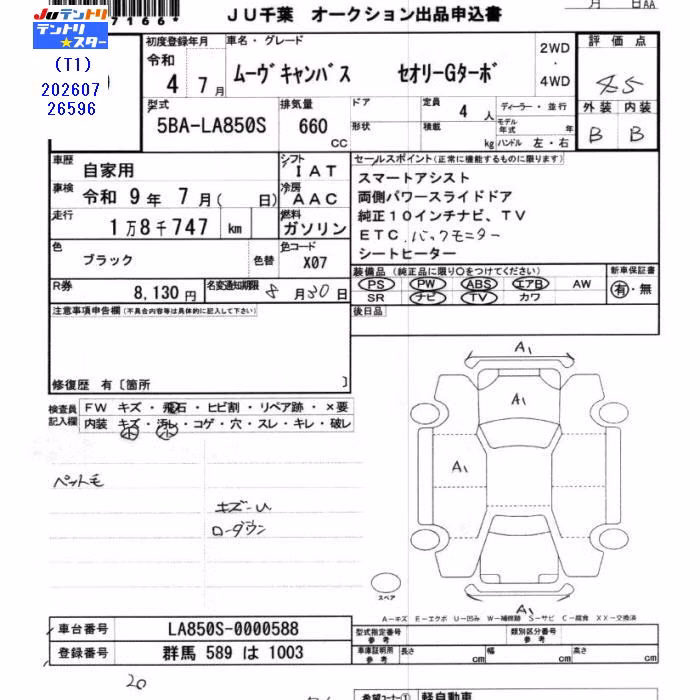 7166*
JUテントリ
テントリ★スター
(T1)
202607
26596
JU千葉 オークション出品申込書
月 日AA
初度登録年月
令和
4年7月
車名・グレード
ムーヴキャンバス セオリーGターボ
2WD
・
4WD
評価点
4.5
外装 内装
B B
型式
5BA-LA850S
排気量
660
CC
ドア
形状
定員 4 人
積載 kg
ディーラー・並行
モデル年式 年
ハンドル 左・右
車歴 自家用
シフト IAT
車検 令和 9年 7月( 日)
冷房 AAC
走行 1万8千747 km
燃料 ガソリン
色 ブラック 色替
色コード X07
R券 8,130円
名変通知期限 8月30日
セールスポイント(正常に機能するものに限ります)
スマートアシスト
両側パワースライドドア
純正10インチナビ、TV
ETC.バックモニター
シートヒーター
装備品(純正品に限り○をつけてください)
PS PW ABS エアB AW
SR ナビ TV カワ
新車保証書
有・無
後日品
注意事項申告欄(不具合内容等は具体的に記入して下さい)
修復歴 有〔箇所 〕
検査員記入欄
FW キズ・飛石・ヒビ割・リペア跡・×要
内装 キズ・汚レ・コゲ・穴・スレ・キレ・破レ
小 小
ペット毛
キズ-U
ローダウン
A1
A1
A1
A1
スペア
A-キズ E-エクボ U-凹み W-補修跡 S-サビ C-腐食 XX-交換済
車台番号 LA850S-0000588
登録番号 群馬 589 は 1003
型式指定番号 参考
類別区分番号 参考
車庫証明用 参考
長さ cm
幅 cm
高さ cm
20
希望コーナー① 軽自動車